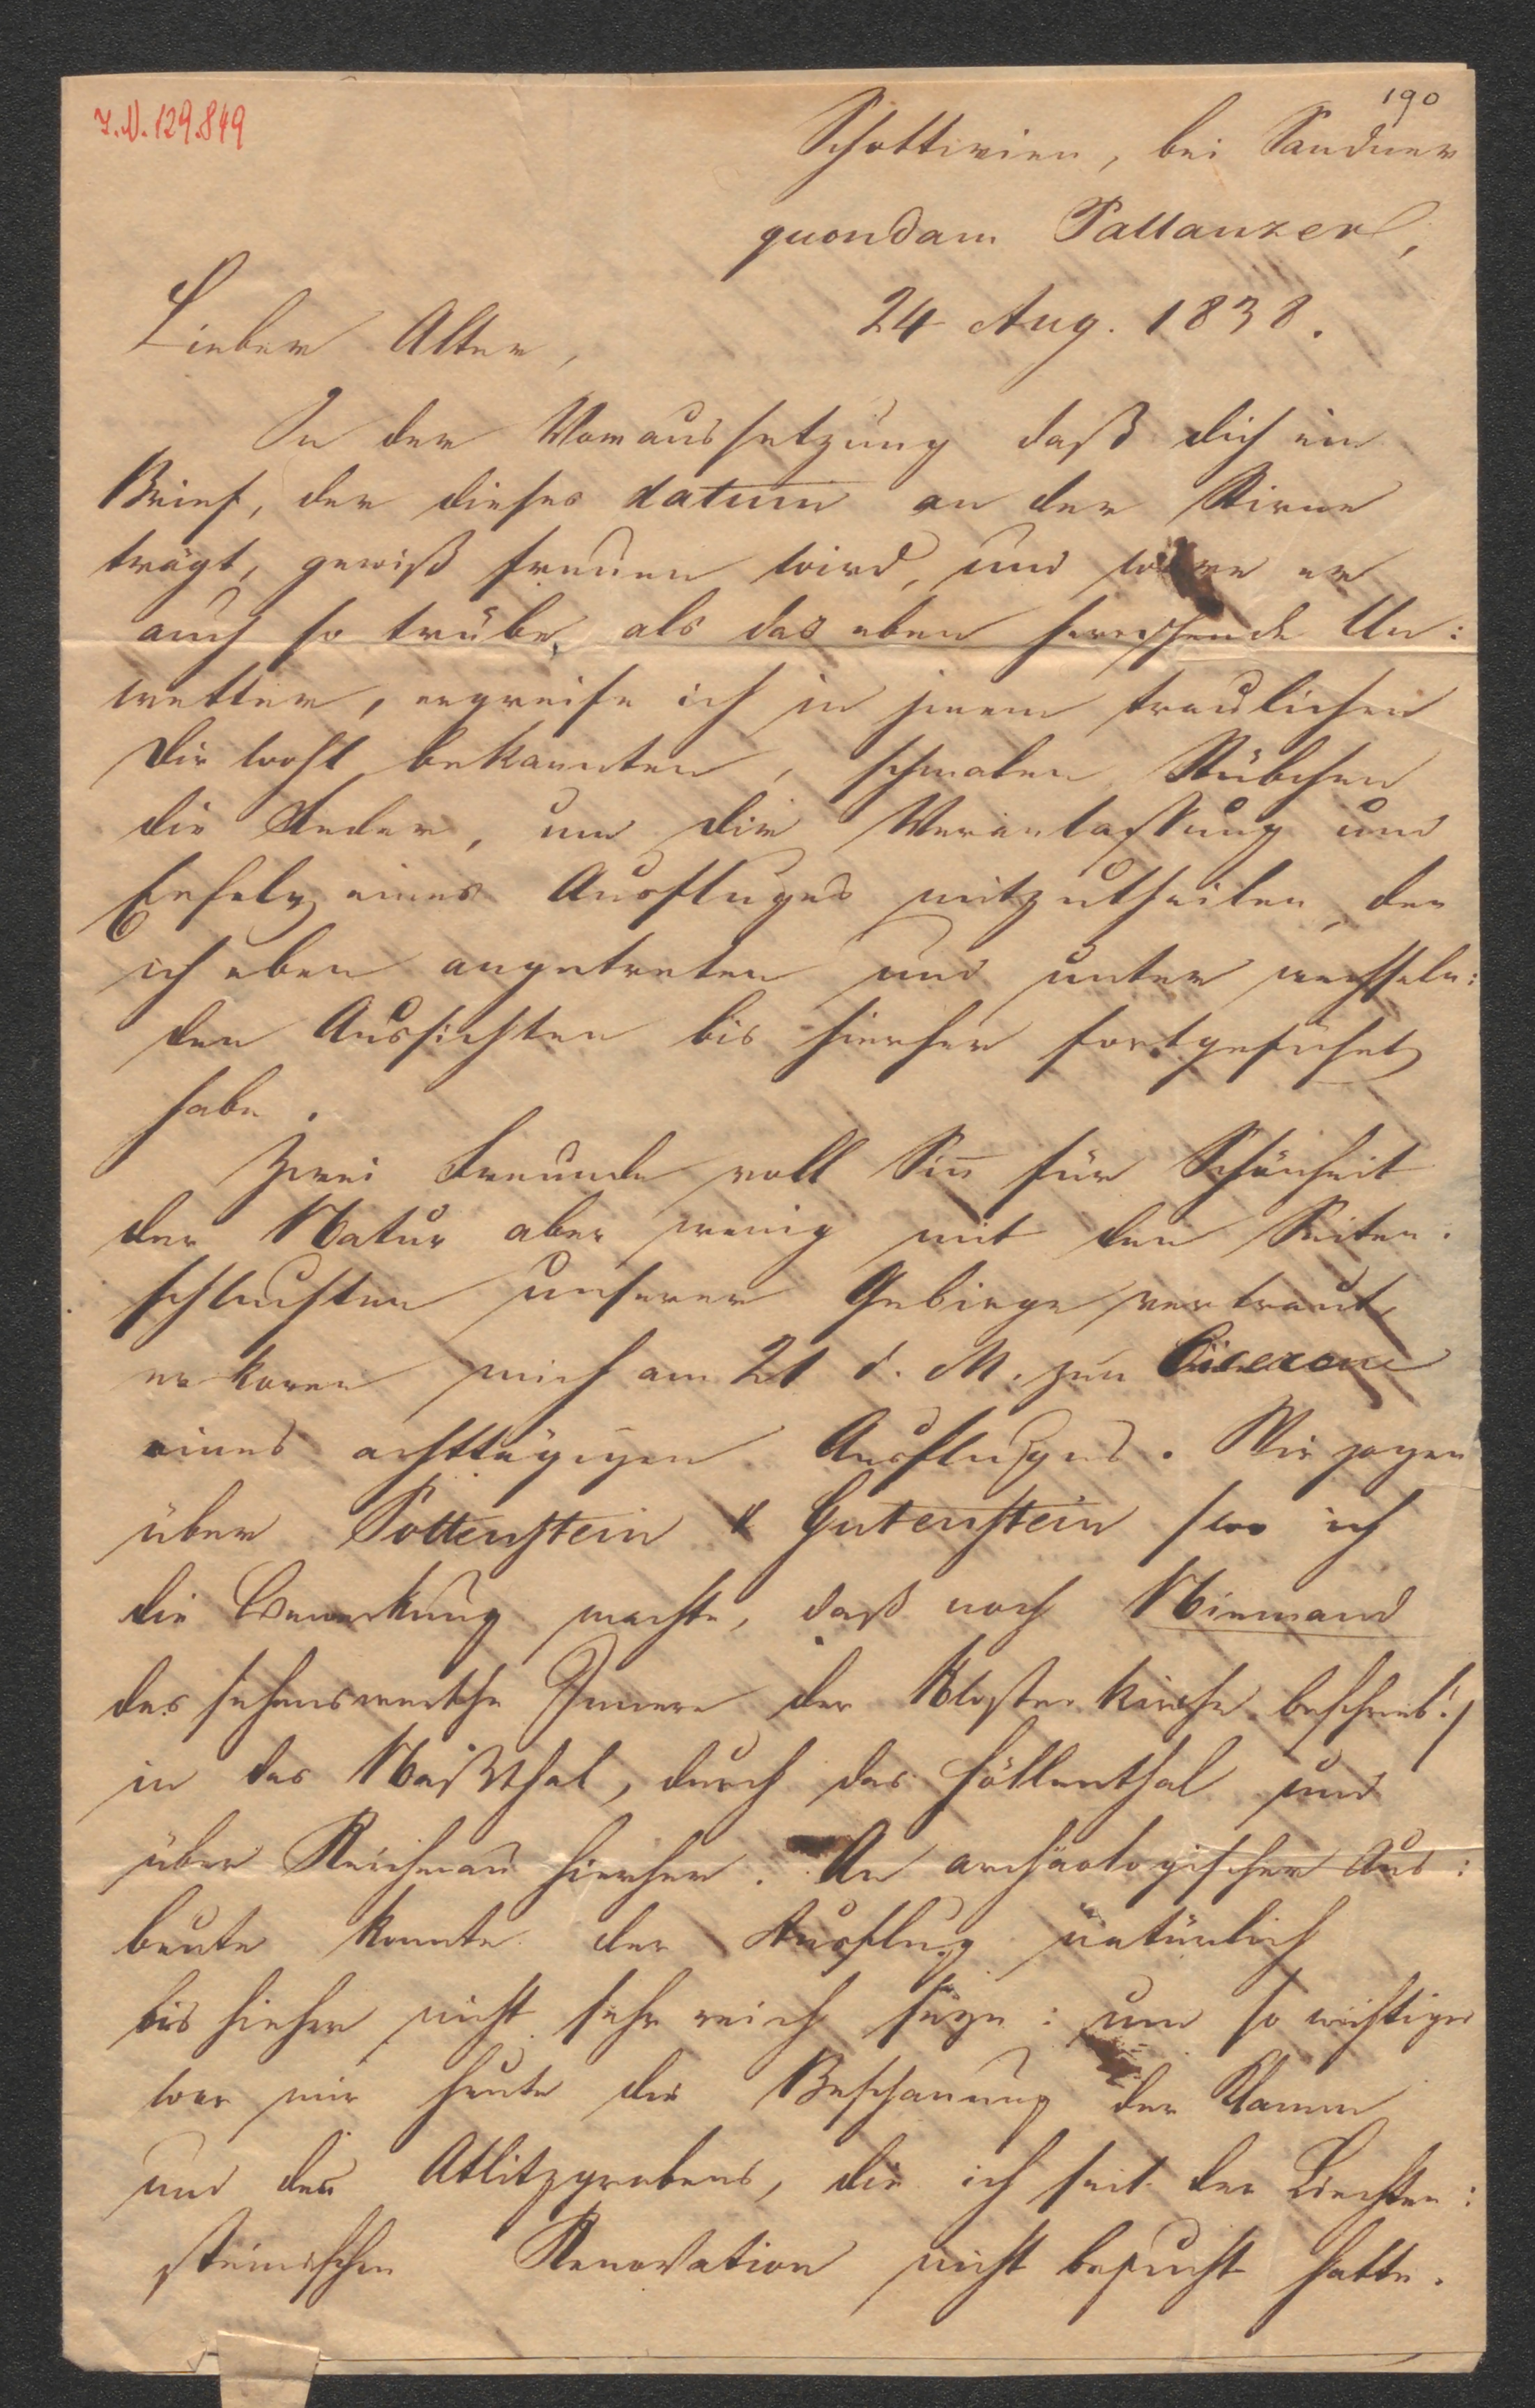 190
I.N. 129.849
Schottwien, bei Sandner
quondam Pallanzer,
24 Aug. 1838.
Lieber Alter,
In der Voraussetzung daß dich ein
Brief, der dieses datum an der Stirne
trägt, gewiß freuen wird, und wäre er
auch so trübe, als das eben herrschende Un:
wetter, ergreife ich in jenem traulichen
Dir wohl bekannten, schmalen Stübchen
die Feder, um dir Veranlassung und
Erfolg eines Ausfluges mitzutheilen, den
ich eben angetreten und unter wechseln:
den Aussichten bis hierher fortgeführt
habe.
Zwei Freunde voll Siñ für Schönheit
der Natur aber wenig mit den Seiten.
schluchten unserer Gebirge vertraut,
erkoren mich am 21 d. M. zum Cicerone
eines achttägigen Ausfluges. Wir zogen
über Pottenstein & Gutenstein (wo ich
die Bemerkung machte, daß noch Niemand
das sehenswerthe Innere der Klosterkirche beschrieb!)
in das Naßthal, durch das Höllenthal und
über Reichenau hierher. An archäologischer Aus:
beute konnte der Ausflug natürlich
bis hieher nicht sehr reich seyn: um so wichtiger
war mir heute die Beschauung der Klamm
und des Atlitzgrabens, die ich seit der Liechten:
steinischen Renovation nicht besucht hatte.